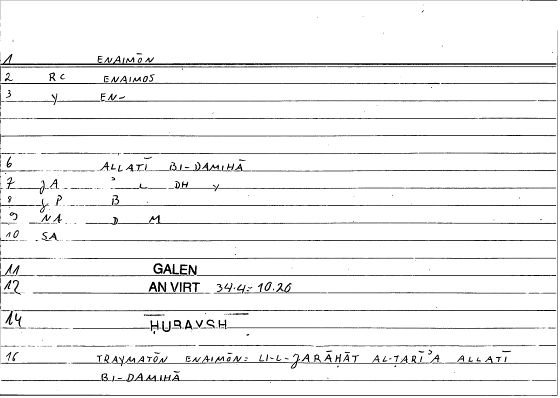 1 ENAIMŌN
2 RC ENAIMOS
3 y EN-
6 ALLATĪ BI-DAMIHĀ
7 JA ʾ L DH Y
8 JP B
9 NA D M
10 SA
11 GALEN
12 AN VIRT 34.4 = 10.20
14 ḤUBAYSH
16 TRAYMATŌN ENAIMŌN: LI-L-JARĀḤĀT AL-ṬARĪʾA ALLATĪ
BI-DAMIHĀ